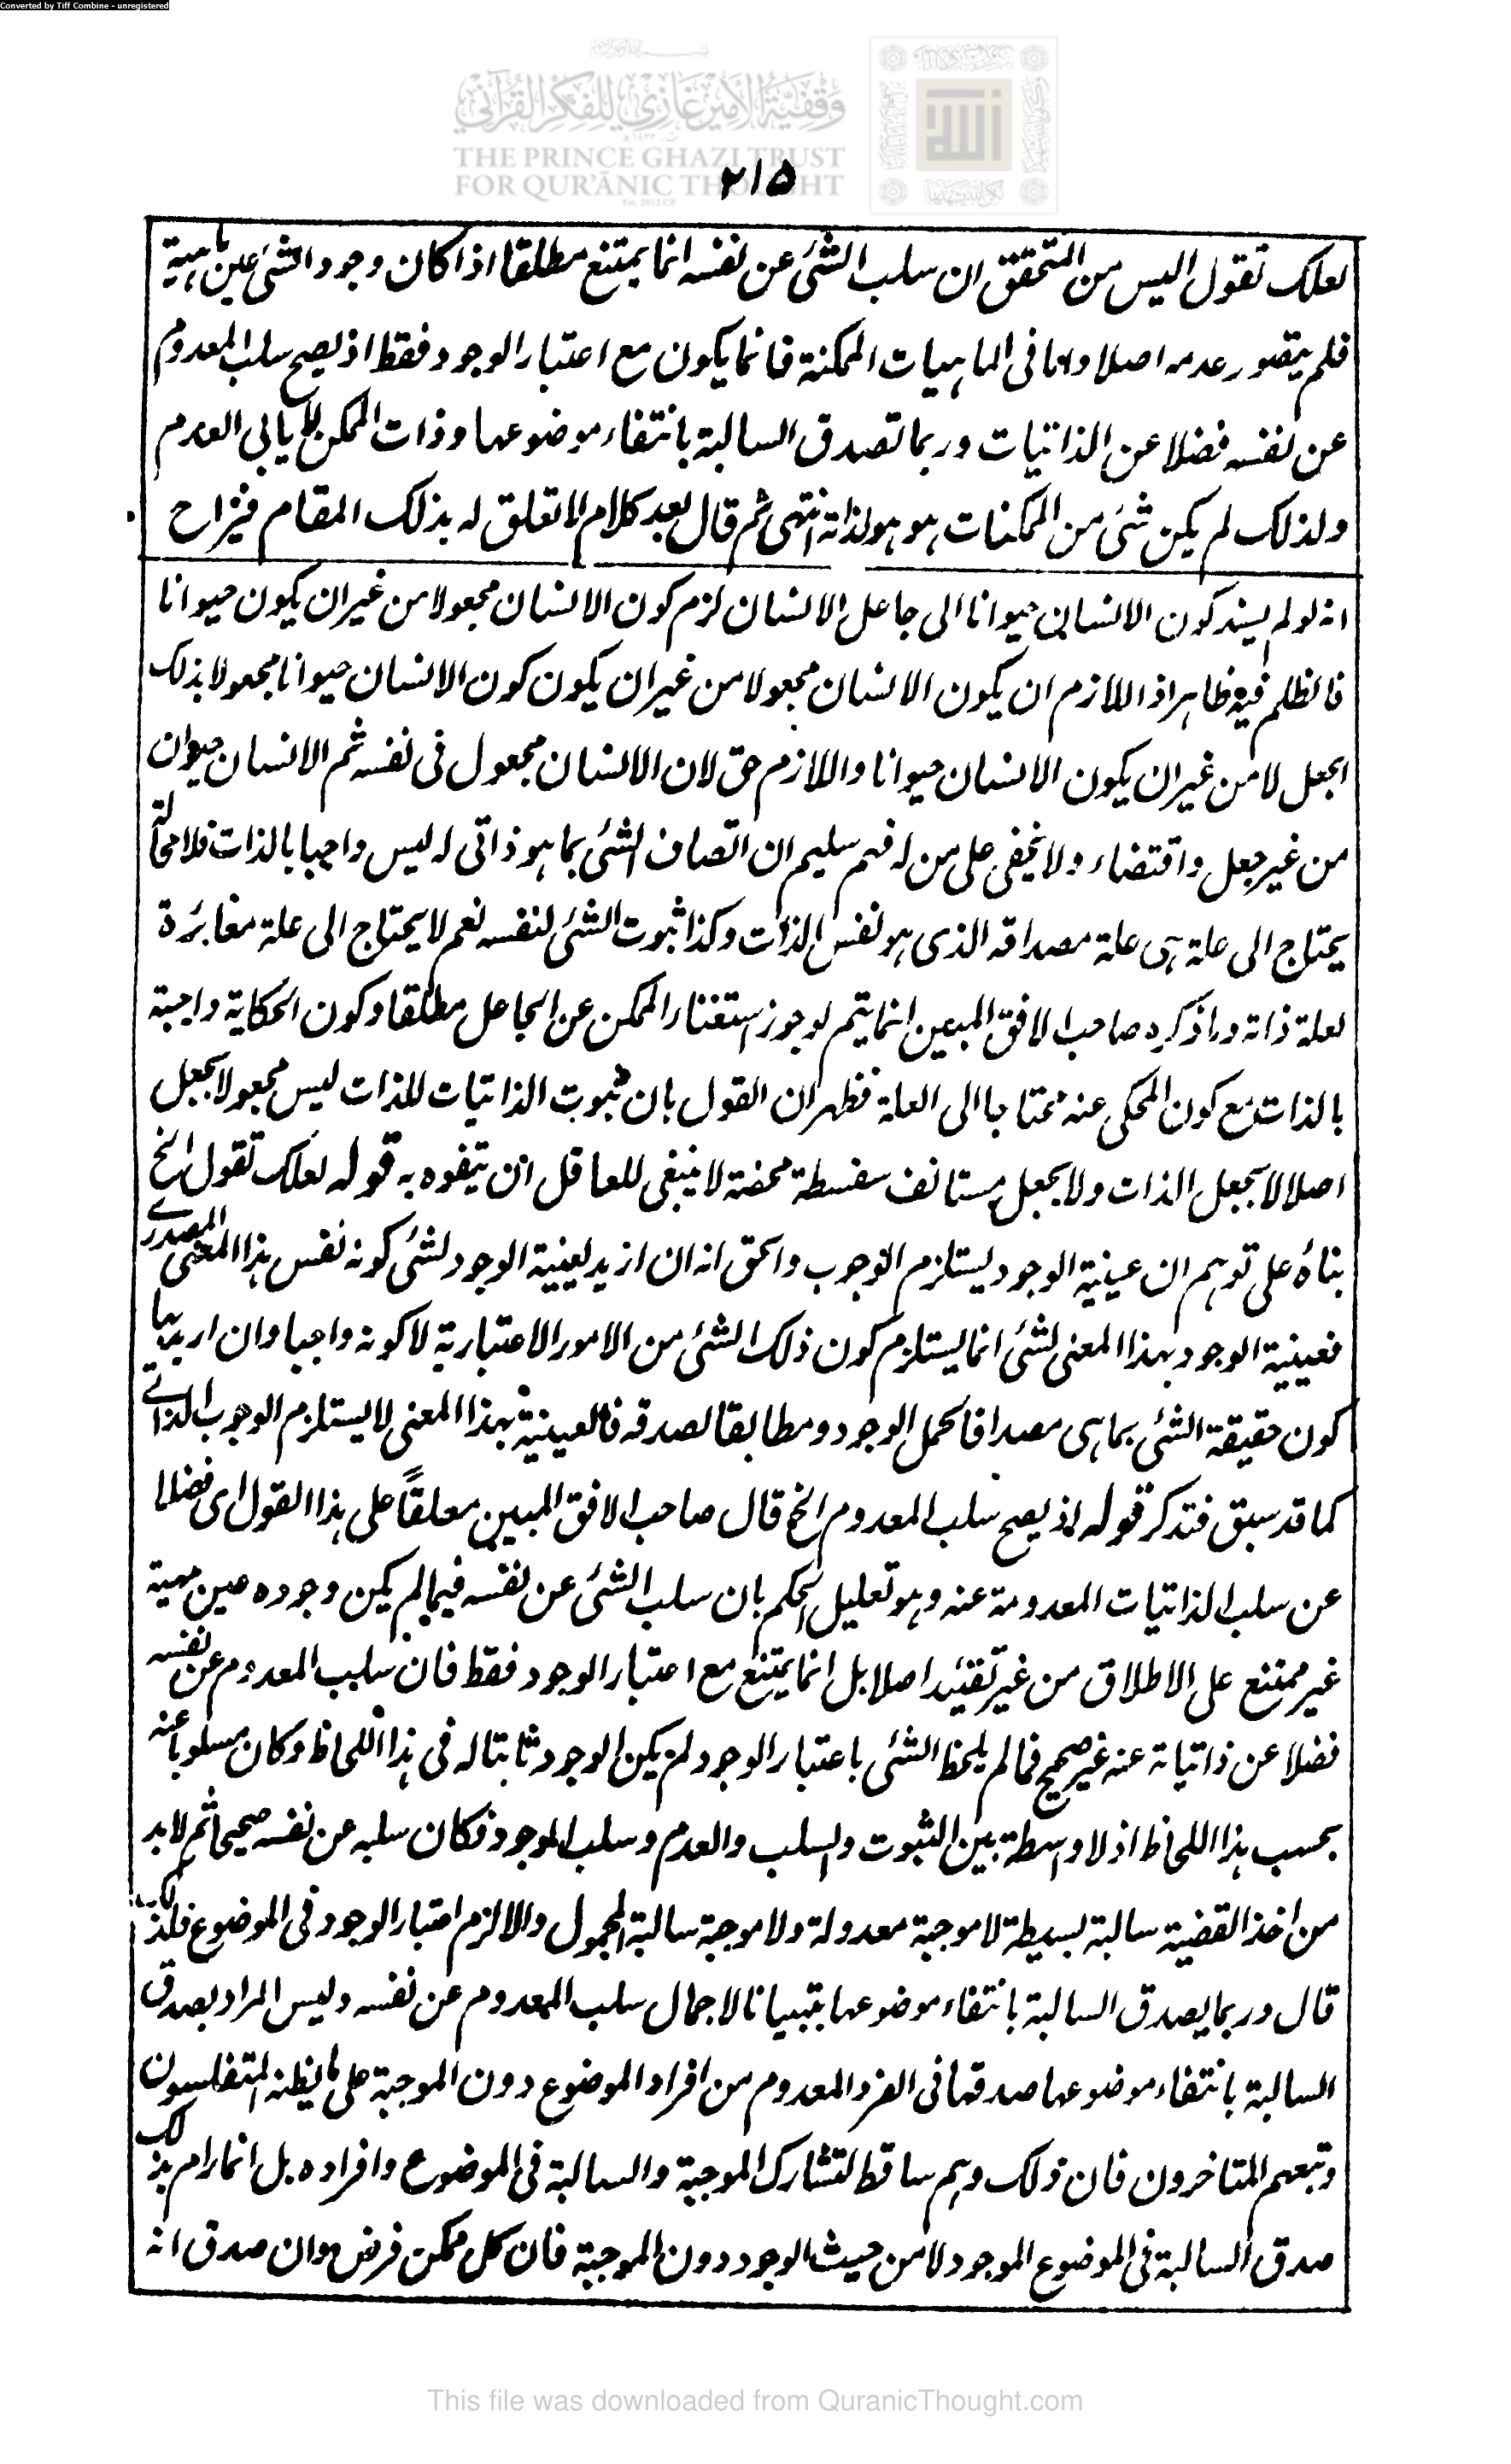 Converted by Tiff Combine - unregistered
وقفية الأمير غازي للفكر القرآني
THE PRINCE GHAZI TRUST
FOR QUR'ĀNIC THOUGHT
٢١٥
لعلك تقول اليس من المتحقق ان سلب الشئ عن نفسه انما يمتنع مطلقا اذا كان وجود الشئ عين ماهية
فلم يتصور عدمه اصلا واما فى الماهيات الممكنة فانما يكون مع اعتبار الوجود فقط اذ يصح سلب المعدوم
عن نفسه فضلا عن الذاتيات وربما تصدق السالبة بانتفاء موضوعها وذات الممكن لا يابى العدم
ولذلك لم يكن شئ من الممكنات هو هو لذاته انتهى ثم قال بعد كلام لا تعلق له بذلك المقام فيزاح
انه لو لم يسند كون الانسان حيوانا الى جاعل الانسان لزم كون الانسان مجعولا من غير ان يكون حيوانا
فالظلم فيه ظاهر اذ اللازم ان يكون الانسان مجعولا من غير ان يكون كون الانسان حيوانا مجعولا بذلك
الجعل لا من غير ان يكون الانسان حيوانا واللازم حق لان الانسان مجعول فى نفسه ثم الانسان حيوان
من غير جعل واقتضاء ولا يخفى على من له فهم سليم ان اتصاف الشئ بما هو ذاتى له ليس واجبا بالذات فلا محالة
يحتاج الى علة هى علة مصداقه الذى هو نفس الذات وكذا ثبوت الشئ لنفسه نعم لا يحتاج الى علة مغائرة
لعلة ذاته وما ذكره صاحب الافق المبين انما يتم لو جوز استغناء الممكن عن الجاعل مطلقا وكون الحكاية واجبة
بالذات مع كون المحكى عنه محتاجا الى العلة فظهر ان القول بان ثبوت الذاتيات للذات ليس مجعولا بجعل
اصلا لا بجعل الذات ولا بجعل مستانف سفسطة محضة لا ينبغى للعاقل ان يتفوه به قوله لعلك تقول الخ
بناءً على توهم ان عينية الوجود يستلزم الوجوب والحق انه ان اريد بعينية الوجود لشئ كونه نفس هذا المعنى المصدرے
فعينية الوجود بهذا المعنى لشئ انما يستلزم كون ذلك الشئ من الامور الاعتبارية لا كونه واجبا وان اريد بها
كون حقيقة الشئ بما هى مصداقا لحمل الوجود ومطابقا لصدقه فالعينية بهذا المعنى لا يستلزم الوجوب الذاتے
كما قد سبق فتذكر قوله اذ يصح سلب المعدوم الخ قال صاحب الافق المبين معلقاً على هذا القول اى فضلا
عن سلب الذاتيات المعدومة عنه وهو تعليل الحكم بان سلب الشئ عن نفسه فيما لم يكن وجوده عين مهية
غير ممتنع على الاطلاق من غير تقئيد اصلا بل انما يمتنع مع اعتبار الوجود فقط فان سلب المعدوم عن نفسه
فضلا عن ذاتياته عنه غير صحيح فما لم يلحظ الشئ باعتبار الوجود لم يكن الوجود ثابتا له فى هذا اللحاظ وكان مسلوبا عنه
بحسب هذا اللحاظ اذ لا واسطة بين الثبوت والسلب والعدم وسلب الوجود فكان سلبه عن نفسه صحيحا ثم لا بد
من اخذ القضية سالبة بسيطة لا موجبة معدولة ولا موجبة سالبة المحمول والا لزم اعتبار الوجود فى الموضوع فلذلك
قال وربما يصدق السالبة بانتفاء موضوعها تبيانا لاجمال سلب المعدوم عن نفسه وليس المراد بصدق
السالبة بانتفاء موضوعها صدقها فى الفرد المعدوم من افراد الموضوع دون الموجبة على ما يظنه المتفلسون
وتبعهم المتاخرون فان ذلك وهم ساقط لتشارك الموجبة والسالبة فى الموضوع وافراده بل انما رام بذلك
صدق السالبة فى الموضوع الموجود لا من حيث الوجود دون الموجبة فان كل ممكن فرض وان صدق انه
This file was downloaded from QuranicThought.com